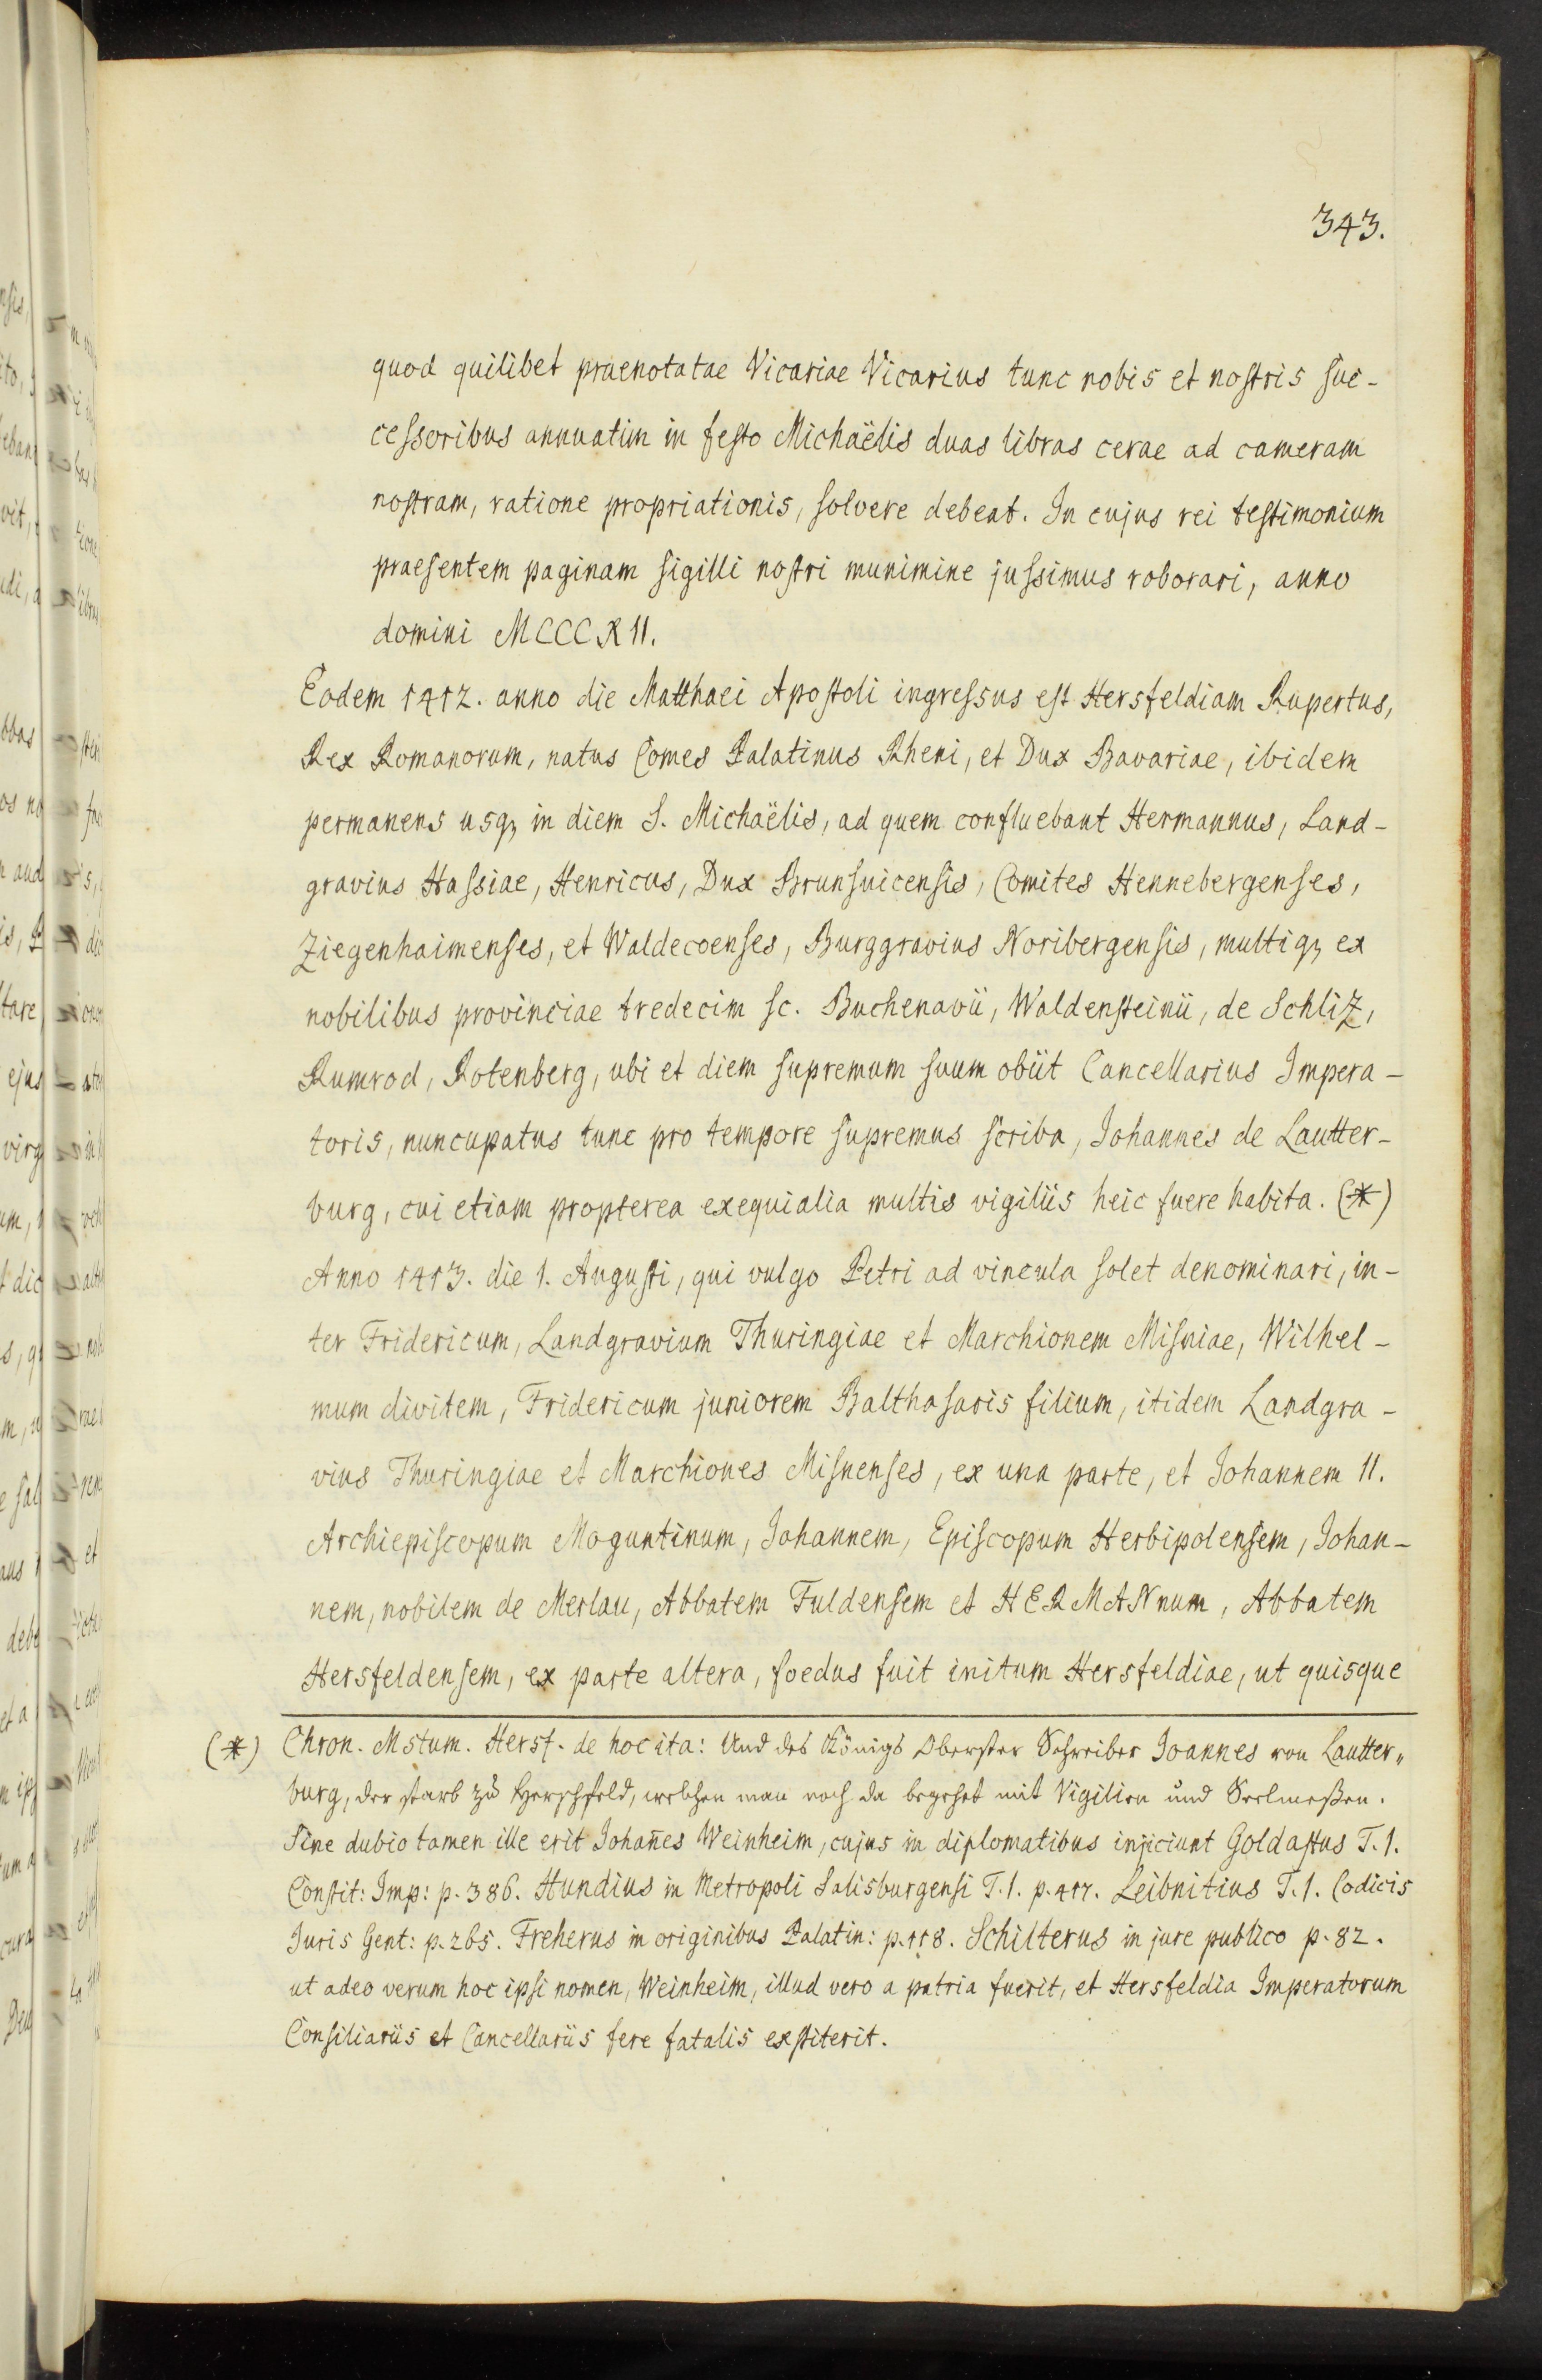 343.
quod quilibet praenotatae Vicariae Vicarius tunc nobis et nostris suc-
cessoribus annuatim in festo Michaëlis duas libras cerae ad cameram
nostram, ratione propriationis, solvere debeat. In cujus rei testimonium
praesentem paginam sigilli nostri munimine jussimus roborari, anno
domini MCCCXII.
Eodem 1412. anno die Matthaei Apostoli ingressus est Hersfeldiam Rupertus,
Rex Romanorum, natus Comes Palatinus Rheni, et Dux Bavariae, ibidem
permanens usq3 in diem S. Michaëlis, ad quem confluebant Hermannus, Land-
gravius Hassiae, Henricus, Dux Brunsuicensis, Comites Hennebergenses,
Ziegenhaimenses, et Waldecoenses, Burggravius Noribergensis, multiq3 ex
nobilibus provinciae tredecim sc. Buchenavii, Waldensteinii, de Schliz,
Rumrod, Rotenberg, ubi et diem supremum suum obiit Cancellarius Impera-
toris, nuncupatus tunc pro tempore supremus scriba, Johannes de Lautter-
burg, cui etiam propterea exequialia multis vigiliis heic fuere habita. (*)
Anno 1413. die 1. Augusti, qui vulgo Petri ad vincula solet denominari, in-
ter Fridericum, Landgravium Thuringiae et Marchionem Misniae, Wilhel-
mum divitem, Fridericum juniorem Balthasaris filium, itidem Landgra-
vius Thuringiae et Marchiones Misnenses, ex una parte, et Johannem II.
Archiepiscopum Moguntinum, Johannem, Episcopum Herbipolensem, Johan-
nem, nobilem de Merlau, Abbatem Fuldensem et HERMANnum, Abbatem
Hersfeldensem, ex parte altera, foedus fuit initum Hersfeldiae, ut quisque
(*) Chron. Mstum. Hersf. de hoc ita: Und des Königs Oberster Schreiber Joannes von Lautter„
burg, der starb zu Herschfeld, welchen man noch da begehet mit Vigilien und Seelmeßen.
Sine dubio tamen ille erit Johan̄es Weinheim, cujus in diplomatibus injiciunt Goldastus T.1.
Constit: Imp: p. 386. Hundius in Metropoli Salisburgensi T.1. p. 417. Leibnitius T.1. Codicis
Juris Gent: p. 265. Freherus in originibus Palatin: p. 118. Schilterus in jure publico p. 82.
ut adeo verum hoc ipsi nomen, Weinheim, illud vero a patria fuerit, et Hersfeldia Imperatorum
Consiliariis et Cancellariis fere fatalis exstiterit.